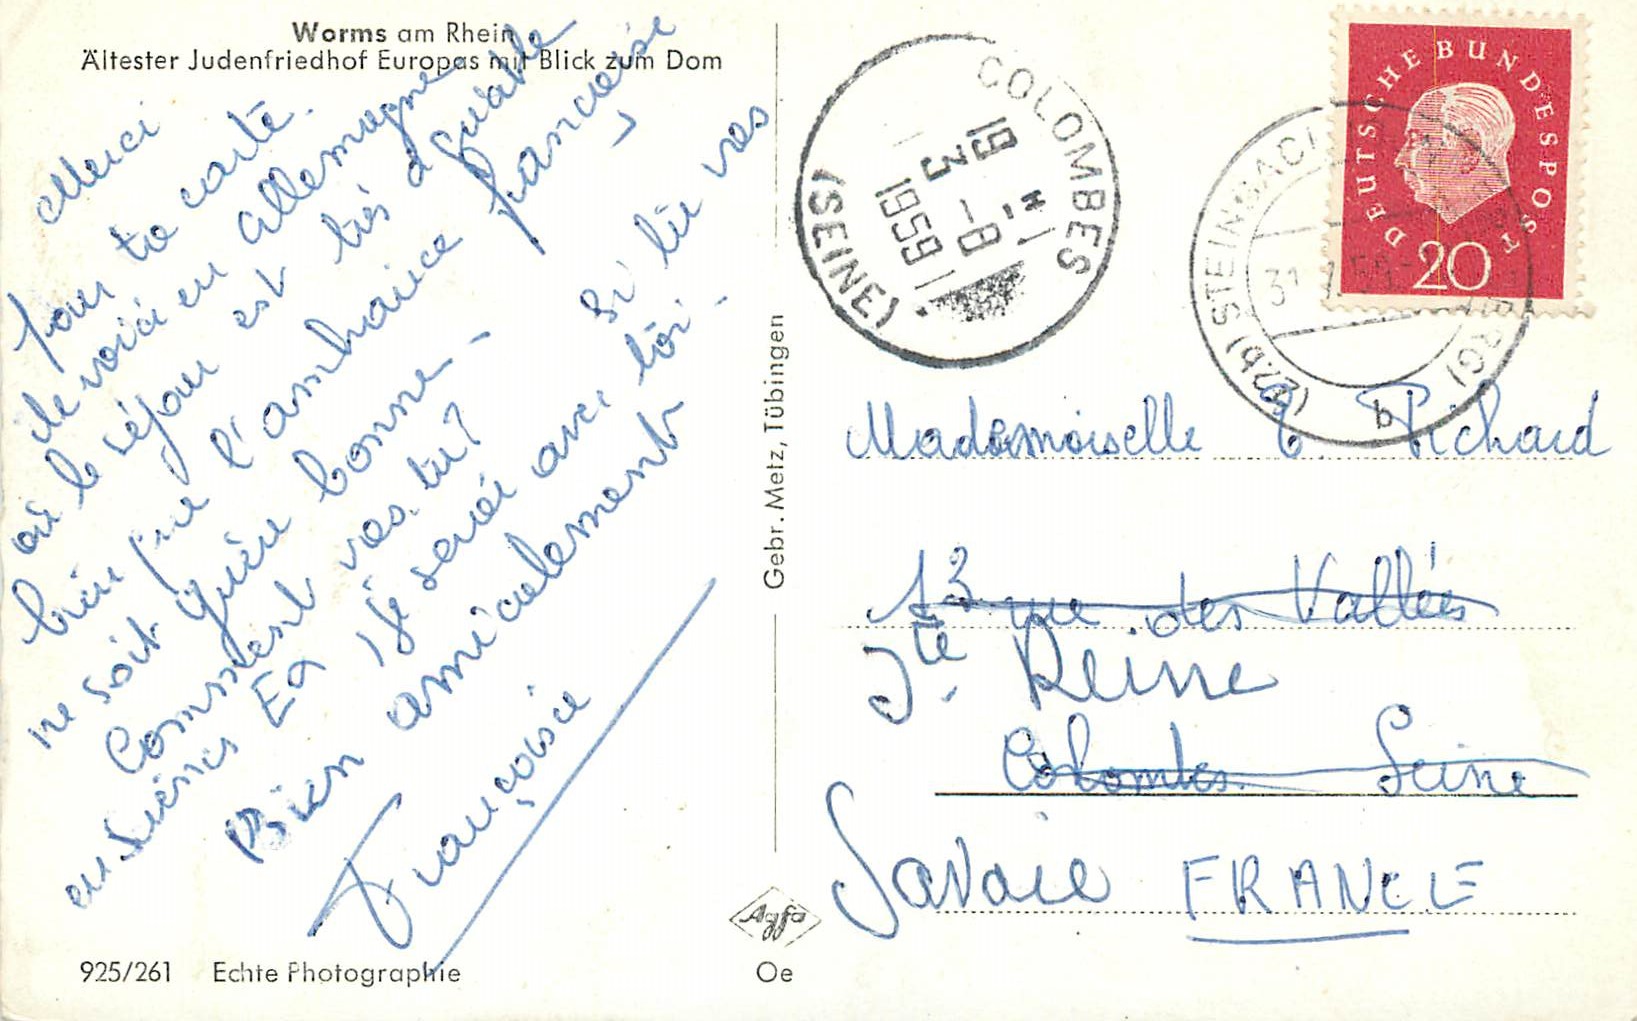 Worms am Rhein
Ältester Judenfriedhof Europas mit Blick zum Dom
Merci
pour ta carte.
Me voici en Allemagne
où le séjour est très agréable
bien que l'ambiance française
ne soit guère bonne -
Comment vas tu? Si tu vas
en Ex je serai avec toi.
Bien amicalement
Françoise
925/261 Echte Photographie
Gebr. Metz, Tübingen
Agfa
Oe
COLOMBES
19 H
3 -8
1959
(SEINE)
DEUTSCHE BUNDESPOST
20
(22b) STEINBACH
31
b
Mademoiselle Pichard
13 rue des Vallées
Ste Reine
Colombes Seine
Savoie FRANCE